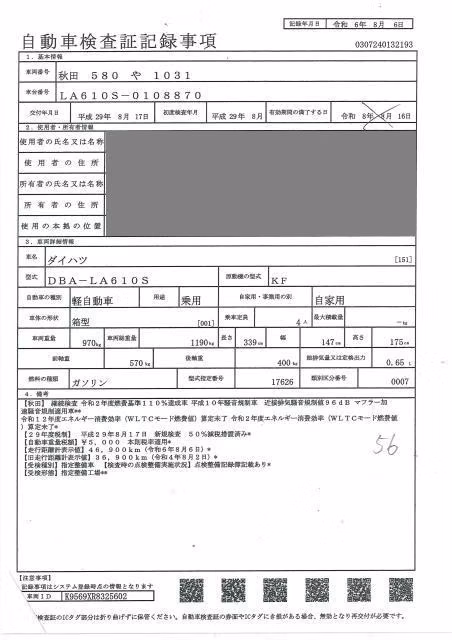 記録年月日 令和 6年 8月 6日
自動車検査証記録事項
0307240132193
1. 基本情報
車両番号 秋田 580 や 1031
車台番号 LA610S-0108870
交付年月日 平成 29年 8月 17日 初度検査年月 平成 29年 8月 有効期間の満了する日 令和 8年 8月 16日
2. 使用者・所有者情報
使用者の氏名又は名称
使用者の住所
所有者の氏名又は名称
所有者の住所
使用の本拠の位置
3. 車両詳細情報
車名 ダイハツ [151]
型式 DBA-LA610S 原動機の型式 KF
自動車の種別 軽自動車 用途 乗用 自家用・事業用の別 自家用
車体の形状 箱型 [001] 乗車定員 4人 最大積載量 -kg
車両重量 970kg 車両総重量 1190kg 長さ 339cm 幅 147cm 高さ 175cm
前軸重 570kg 後軸重 400kg 総排気量又は定格出力 0.65L
燃料の種類 ガソリン 型式指定番号 17626 類別区分番号 0007
4. 備考
【秋田】 継続検査 令和2年度燃費基準110%達成車 平成10年騒音規制車 近接排気騒音規制値96dB マフラー加
速騒音規制適用車**
令和12年度エネルギー消費効率(WLTCモード燃費値)算定未了 令和2年度エネルギー消費効率(WLTCモード燃費値
)算定未了*
【29年度税制】 平成29年8月17日 新規検査 50%減税措置済み*
【自動車重量税額】¥5,000 本則税率適用*
【走行距離計表示値】46,900km(令和6年8月6日)*
【旧走行距離計表示値】36,900km(令和4年8月2日)*
【受検種別】指定整備車 【検査時の点検整備実施状況】点検整備記録簿記載あり*
【受検形態】指定整備工場**
56
【注意事項】
記録事項はシステム登録時点の情報となります
車両ID K9569XR8325602
検査証のICタグ部分は折り曲げずに保管ください。自動車検査証の券面やICタグに き損がある場合、無効となり再交付が必要です。